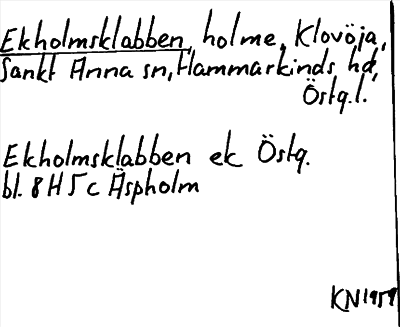 Ekholmsklabben, holme, Klovöja,
Sankt Anna sn, Hammarkinds hd,
Östg.l.
Ekholmsklabben ek Östg.
bl. 8H 5c Äspholm
KN 1959